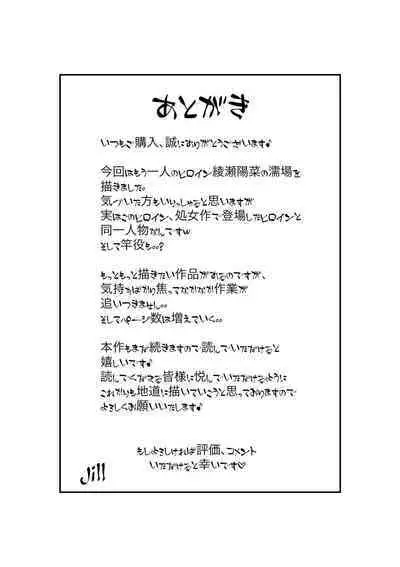 あとがき
いつもご購入、誠にありがとうございます♪
今回はもう一人のヒロイン綾瀬陽菜の濡場を
描きました。
気づいた方もいらっしゃると思いますが
実はこのヒロイン、処女作で登場したヒロインと
同一人物なんですw
そして竿役も…?
もっともっと描きたい作品があるのですが、
気持ちばかり焦ってなかなか作業が
追いつきません…
そしてページ数は増えていく…
本作もまだ続きますので読んでいただけると
嬉しいです♪
読してくださる皆様に悦んでいただけるように
これからも地道に描いていこうと思っておりますので
よろしくお願いいたします♪
もしよろしければ評価、コメント
いただけると幸いです♡
Jill